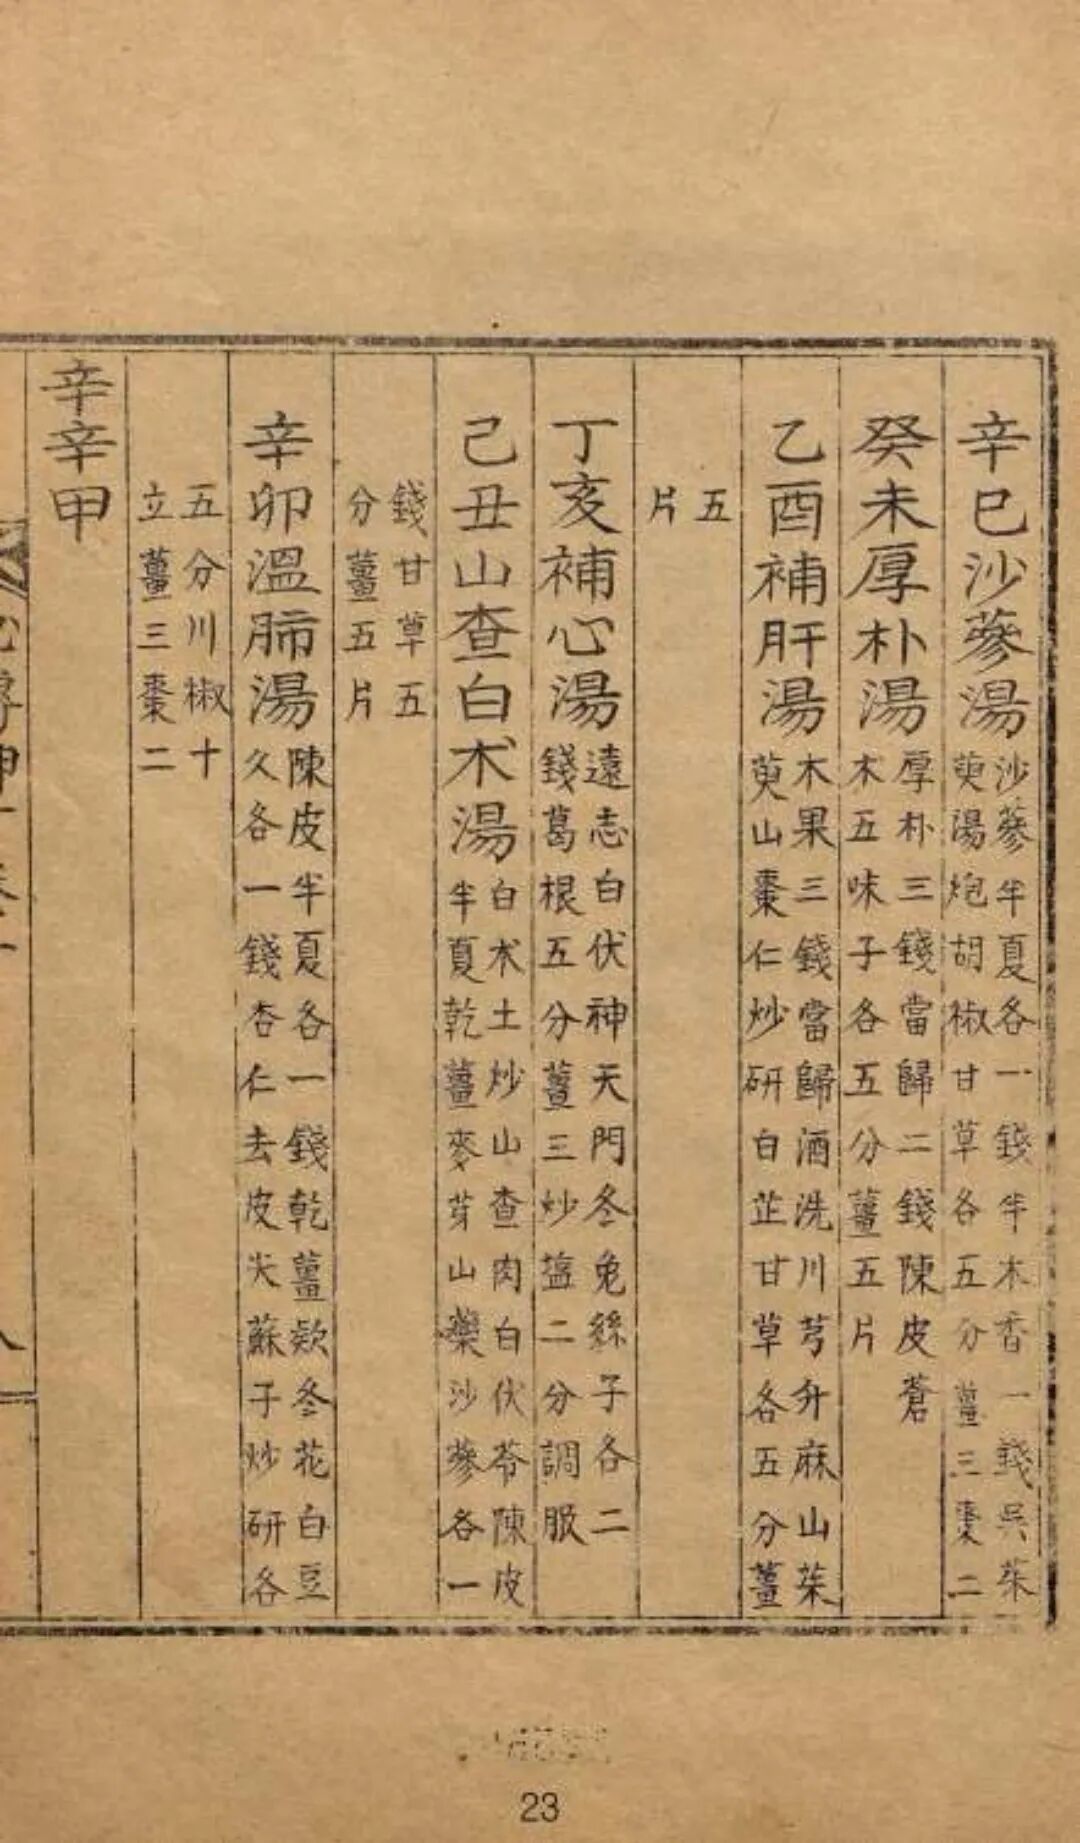 辛巳沙蔘湯 沙蔘半夏各一錢半木香一錢吳茱
萸湯炮胡椒甘草各五分薑三棗二
癸未厚朴湯 厚朴三錢當歸二錢陳皮蒼
木五味子各五分薑五片
乙酉補肝湯 木果三錢當歸酒洗川芎升麻山茱
萸山棗仁炒研白芷甘草各五分薑
五
片
丁亥補心湯 遠志白伏神天門冬兔絲子各二
錢葛根五分薑三炒塩二分調服
己丑山查白术湯 白术土炒山查肉白伏苓陳皮
半夏乾薑麥芽山藥沙蔘各一
錢甘草五
分薑五片
辛卯溫肺湯 陳皮半夏各一錢乾薑欵冬花白豆
久各一錢杏仁去皮尖蘇子炒研各
五分川椒十
立薑三棗二
辛辛甲
23